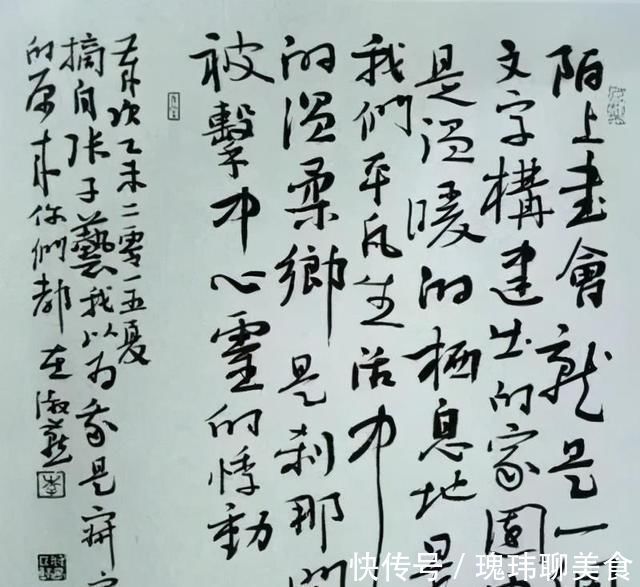 陌上書會就是一
文字構建出的家園
是温暖的栖息地是
我們平凡生活中
的温柔鄉是刹那間
被擊中心靈的悸動
歲次乙未二零一五夏
摘自張子藝我以为我是寂
的原來你們都在淑蘓
快传号/瑰玮聊美食